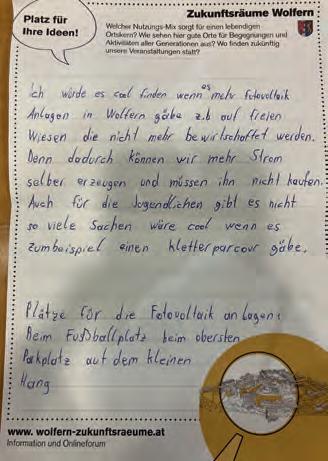 Platz für
Ihre Ideen!
Zukunftsräume Wolfern
Welcher Nutzungs-Mix sorgt für einen lebendigen
Ortskern? Wie sehen hier gute Orte für Begegnungen und
Aktivitäten aller Generationen aus? Wo finden zukünftig
unsere Veranstaltungen statt?
Ich würde es cool finden wenn es mehr Fotovoltaik
Anlagen in Wolfern gäbe z.b auf freien
Wiesen die nicht mehr bewirtschaftet werden.
Denn dadurch können wir mehr Strom
selber erzeugen und müssen ihn nicht kaufen.
Auch für die Jugendlichen gibt es nicht
so viele Sachen wäre cool wenn es
zumbeispiel einen kletterparcour gäbe.
Plätze für die Fotovoltaik anlagen:
Beim Fußballplatz beim obersten
Pakplatz auf dem kleinen
Hang
www.wolfern-zukunftsraeume.at
Information und Onlineforum